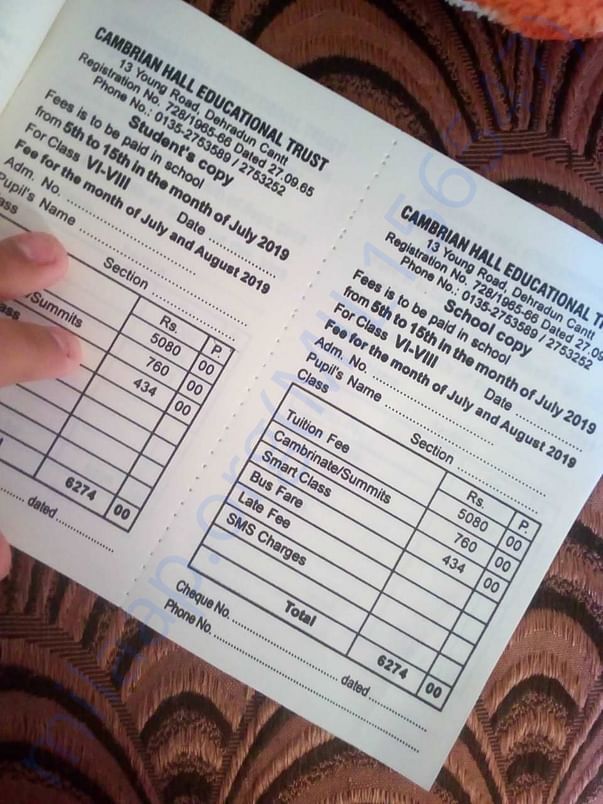 CAMBRIAN HALL EDUCATIONAL TRUST
13 Young Road, Dehradun Cantt
Registration No. 728/1965-66 Dated 27.09.65
Phone No.: 0135-2753589 / 2753252
Student's copy
Fees is to be paid in school
from 5th to 15th in the month of July 2019
For Class VI-VIII Date ..................
Fee for the month of July and August 2019
Adm. No. ..................
Pupil's Name ..................
Section ..................
Rs. P.
5080 00
/Summits 760 00
434 00
6274 00
dated ..................
CAMBRIAN HALL EDUCATIONAL
13 Young Road, Dehradun Cantt
Registration No. 728/1965-66 Dated 27.09
Phone No.: 0135-2753589 / 2753252
School copy
Fees is to be paid in school
from 5th to 15th in the month of July 2019
For Class VI-VIII Date ..................
Fee for the month of July and August 2019
Adm. No. ..................
Pupil's Name ..................
Class Section ..................
Rs. P.
Tuition Fee 5080 00
Cambrinate/Summits 760 00
Smart Class 434 00
Bus Fare
Late Fee
SMS Charges
Total 6274 00
Cheque No. .................. dated ..................
Phone No. ..................